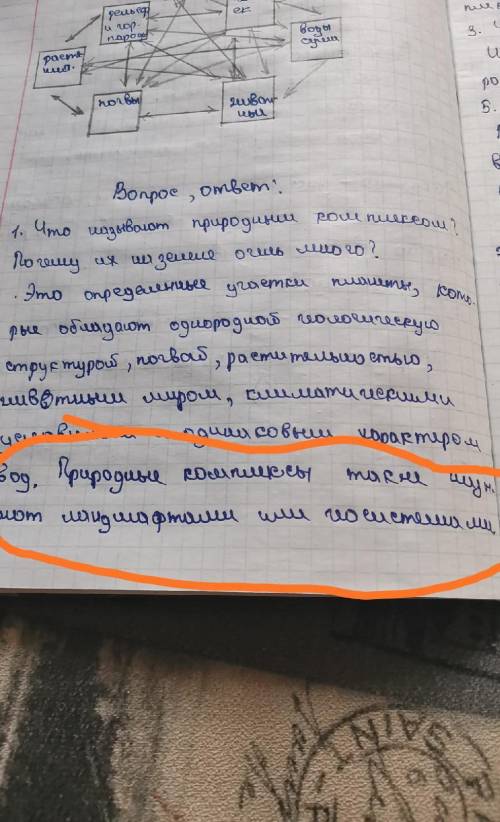 рельеф
и гор.
породы
ек
воды
суши
расте-
ния.
почвы
живот-
ный
3.
5.
Вопрос, ответ:
1. Что называют природным комплексом?
Почему их на земле очень много?
Это определенные участки планеты, кото-
рые обладают однородной геологическую
структурой, почвой, растительностью,
животным миром, климатическими
одинаковым характером
вод. Природные комплексы также
ландшафтами или геосистемами
SAINT